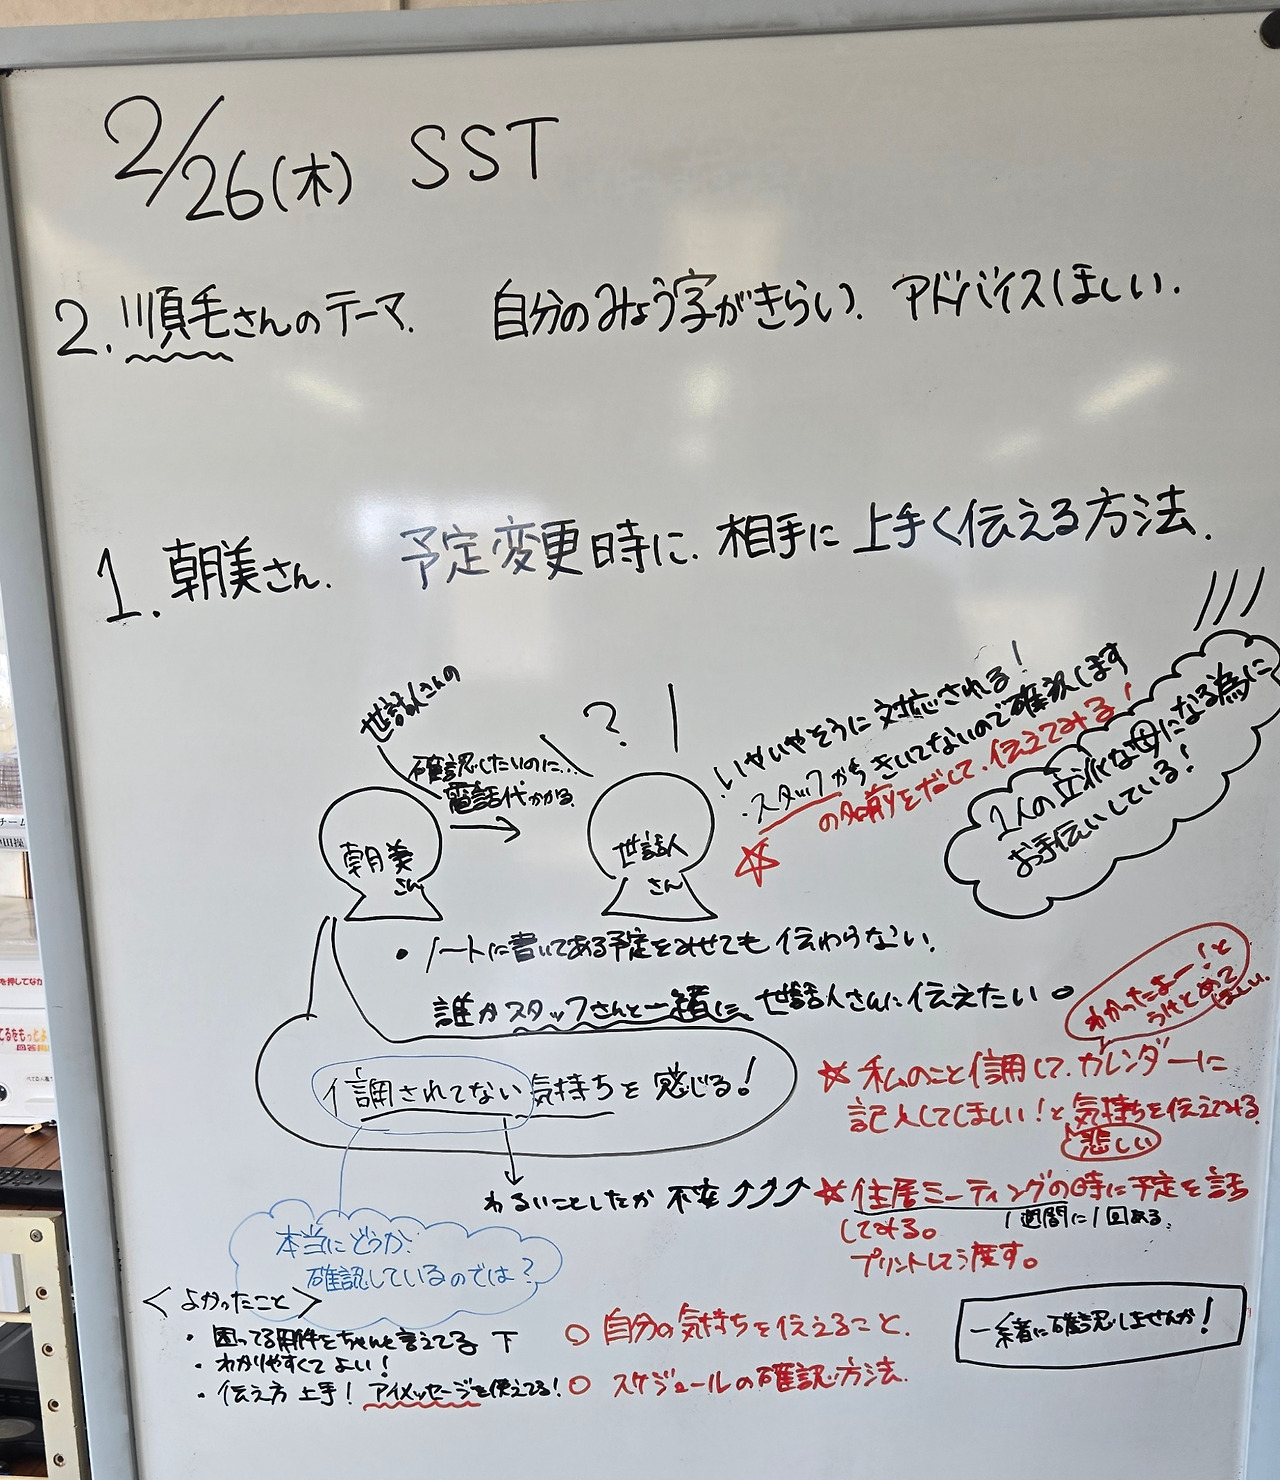 2/26(木) SST
2. 順毛さんのテーマ. 自分のみょう字がきらい. アドバイスほしい.
1. 朝美さん. 予定変更時に. 相手に上手く伝える方法.
世話人さんの
確認したいのに…
電話代かかる.
?
朝美
さん
世話人
さん
・いやいやそうに対応される!
・スタッフからきいてないので確認します
の名前をだして. 伝えてみる!
1人の立派な母になる為に
お手伝いしている!
・ノートに書いてある予定をみせても伝わらない.
誰かスタッフさんと一緒に、世話人さんに伝えたい
わかったよー!と
うけとめて
ほしい.
信調されてない気持ちを感じる!
☆私のこと信調して. カレンダーに
記入してほしい!と気持ちを伝えてみる.
悲しい
わるいことしたか 不安⤴⤴⤴
☆住居ミーティングの時に予定を話
してみる。
1週間に1回ある.
プリントして渡す。
本当にどうか.
確認しているのでは?
<よかったこと>
・困ってる用件をちゃんと言えてる
・わかりやすくてよい!
・伝え方上手! アイメッセージを使えてる!
○ 自分の気持ちを伝えること.
○ スケジュールの確認方法.
一緒に確認しませんか!
チーム
を押してなか
てるをもっとよ